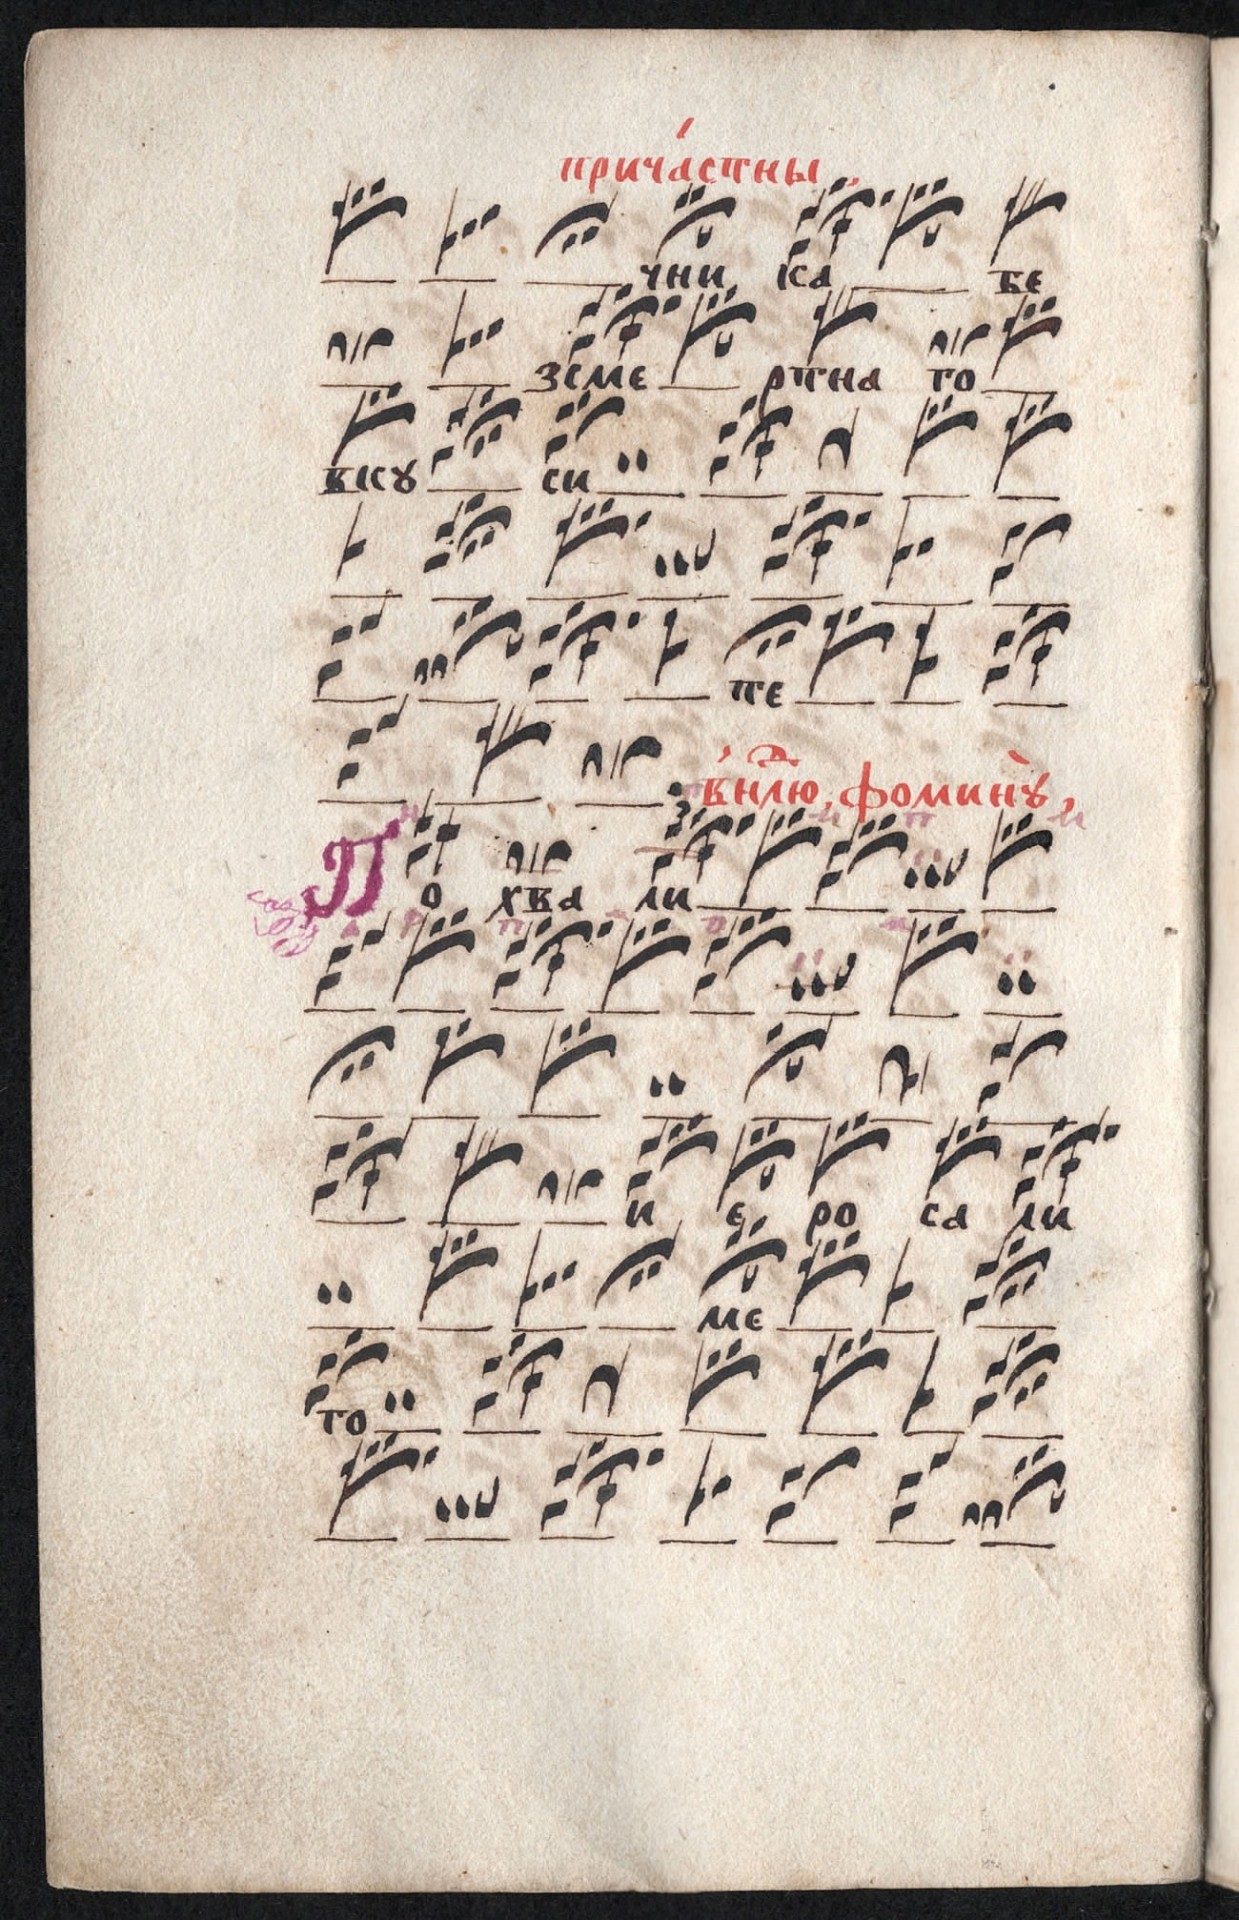 прича́стны
чни ка бе
зсме ртна го
вкꙋ си
пе
в҆нлю, фоминꙋ̀,
П о хва ли
и е ро са ли
ме
го